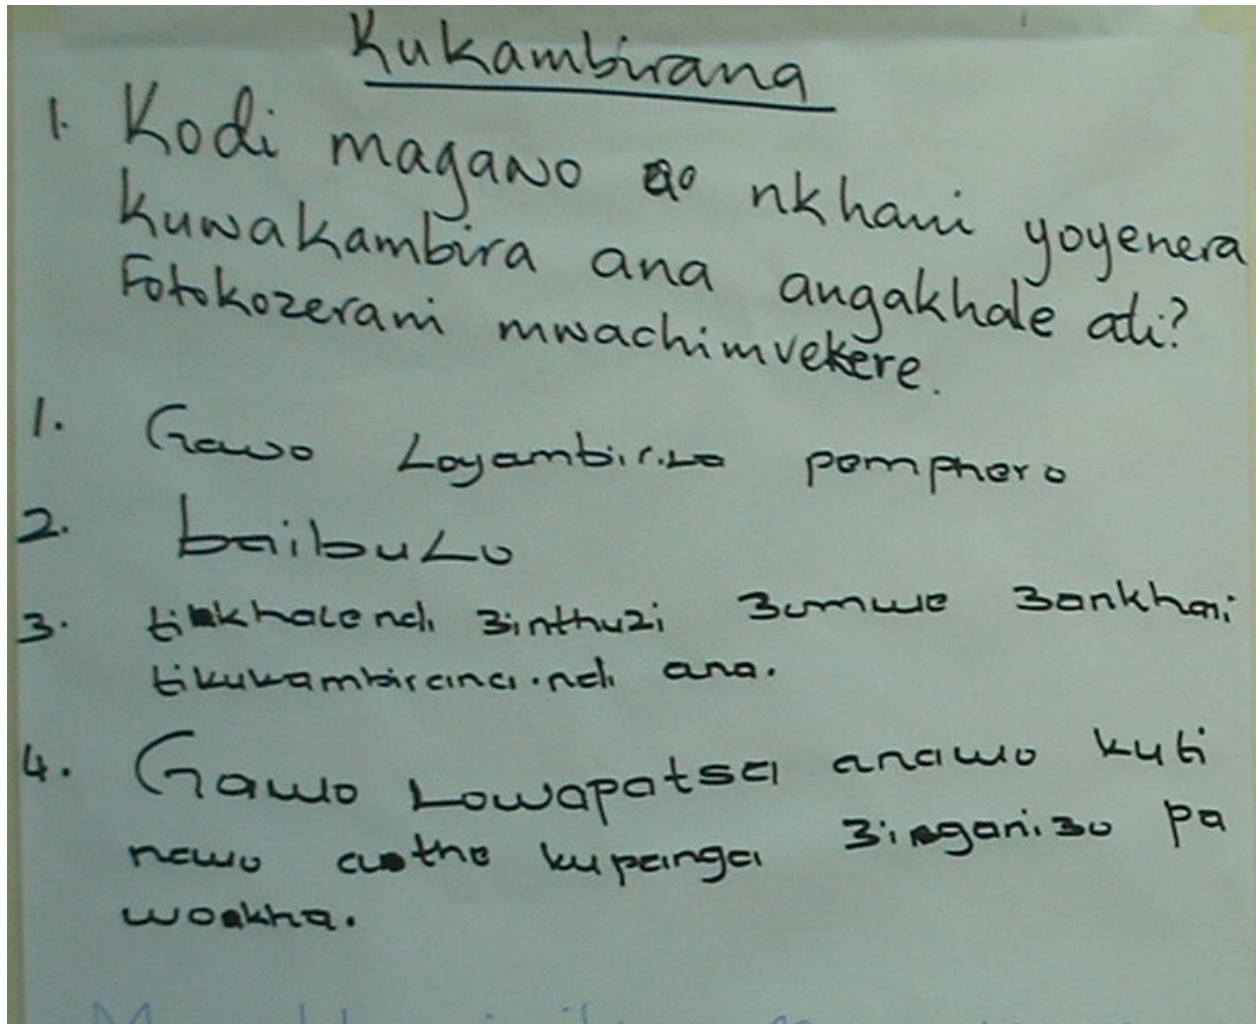 Kukambirana
1. Kodi magawo a nkhani yoyenera
kuwakambira ana angakhale ati?
Fotokozerani mwachimvekere.
1. Gawo Loyambirira pemphero
2. baibuLo
3. tikhale ndi zinthuzi zumwe zankhani
tikukambirana ndi ana.
4. Gawo Lowapatsa anawo kuti
nawo athe kupanga ziganizo pa
wokha.